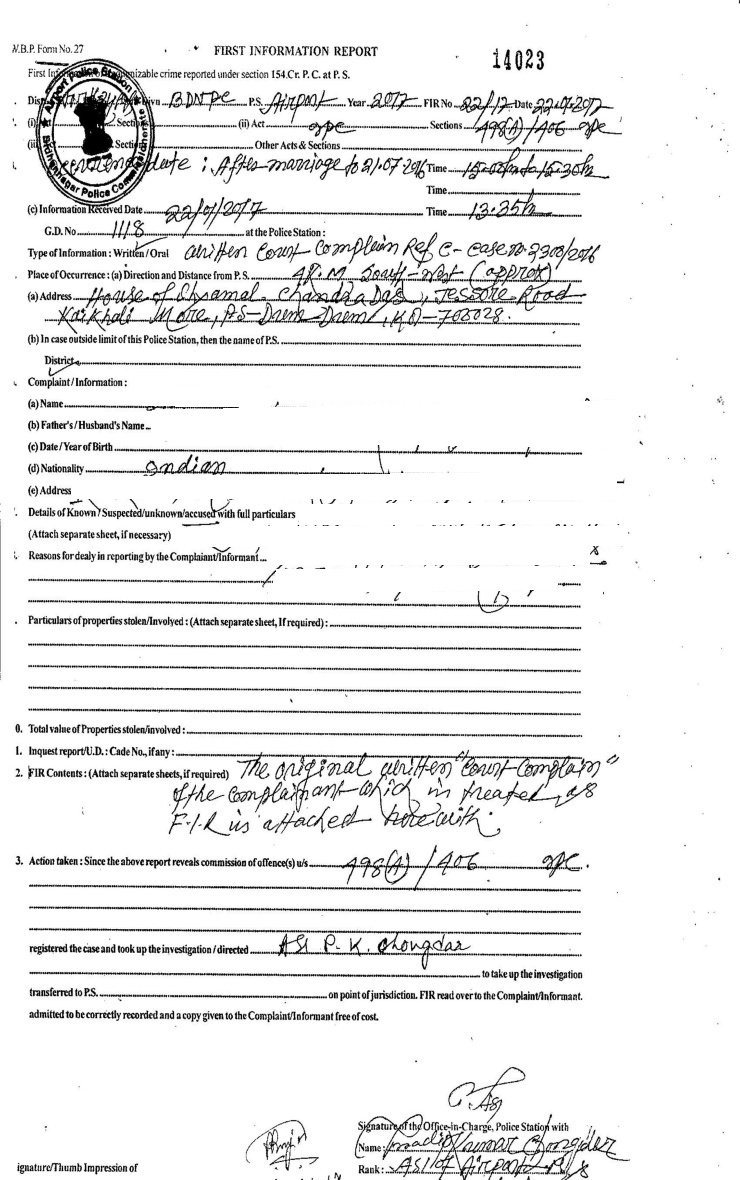 W.B.P. Form No. 27
FIRST INFORMATION REPORT
14023
First Information of a cognizable crime reported under section 154.Cr. P. C. at P. S.
BDNPC P.S. Airport Year 2017 FIR No 22/17 Date 22.01.2017
(i) Section (ii) Act IPC Sections 498(A)/406 IPC
(iii) Section Other Acts & Sections
date : After marriage to 21/07/2016 Time 15-00 hrs to 15-30 hrs
Time
(c) Information Received Date 22/01/2017 Time 13:35 hrs
G.D. No 1118 at the Police Station :
Type of Information : Written / Oral written Court Complain Ref C- Case no 3300/2016
Place of Occurrence : (a) Direction and Distance from P. S. 4K.M South-west (approx)
(a) Address House of Shyamal Chandra Das, Jessore Road
Kaikhali More, PS-Dum Dum, Kol-700028.
(b) In case outside limit of this Police Station, then the name of P.S.
District
Complaint / Information :
(a) Name
(b) Father's / Husband's Name
(c) Date / Year of Birth
(d) Nationality Indian
(e) Address
Details of Known / Suspected/unknown/accused with full particulars
(Attach separate sheet, if necessary)
Reasons for dealy in reporting by the Complaiant/Informant
x
Particulars of properties stolen/Involved : (Attach separate sheet, If required) :
0. Total value of Properties stolen/involved :
1. Inquest report/U.D. : Cade No., if any :
2. FIR Contents : (Attach separate sheets, if required) The original written "Court Complain"
of the complainant which is treated as
F.I.R is attached herewith.
3. Action taken : Since the above report reveals commission of offence(s) u/s 498(A) / 406 IPC.
registered the case and took up the investigation / directed ASI P. K. Chongdar
to take up the investigation
transferred to P.S. on point of jurisdiction. FIR read over to the Complaint/Informant.
admitted to be correctly recorded and a copy given to the Complaint/Informant free of cost.
Signature of the Office-in-Charge, Police Station with
Name : Kumar Chongder
Rank : ASI of Airport P.S
ignature/Thumb Impression of